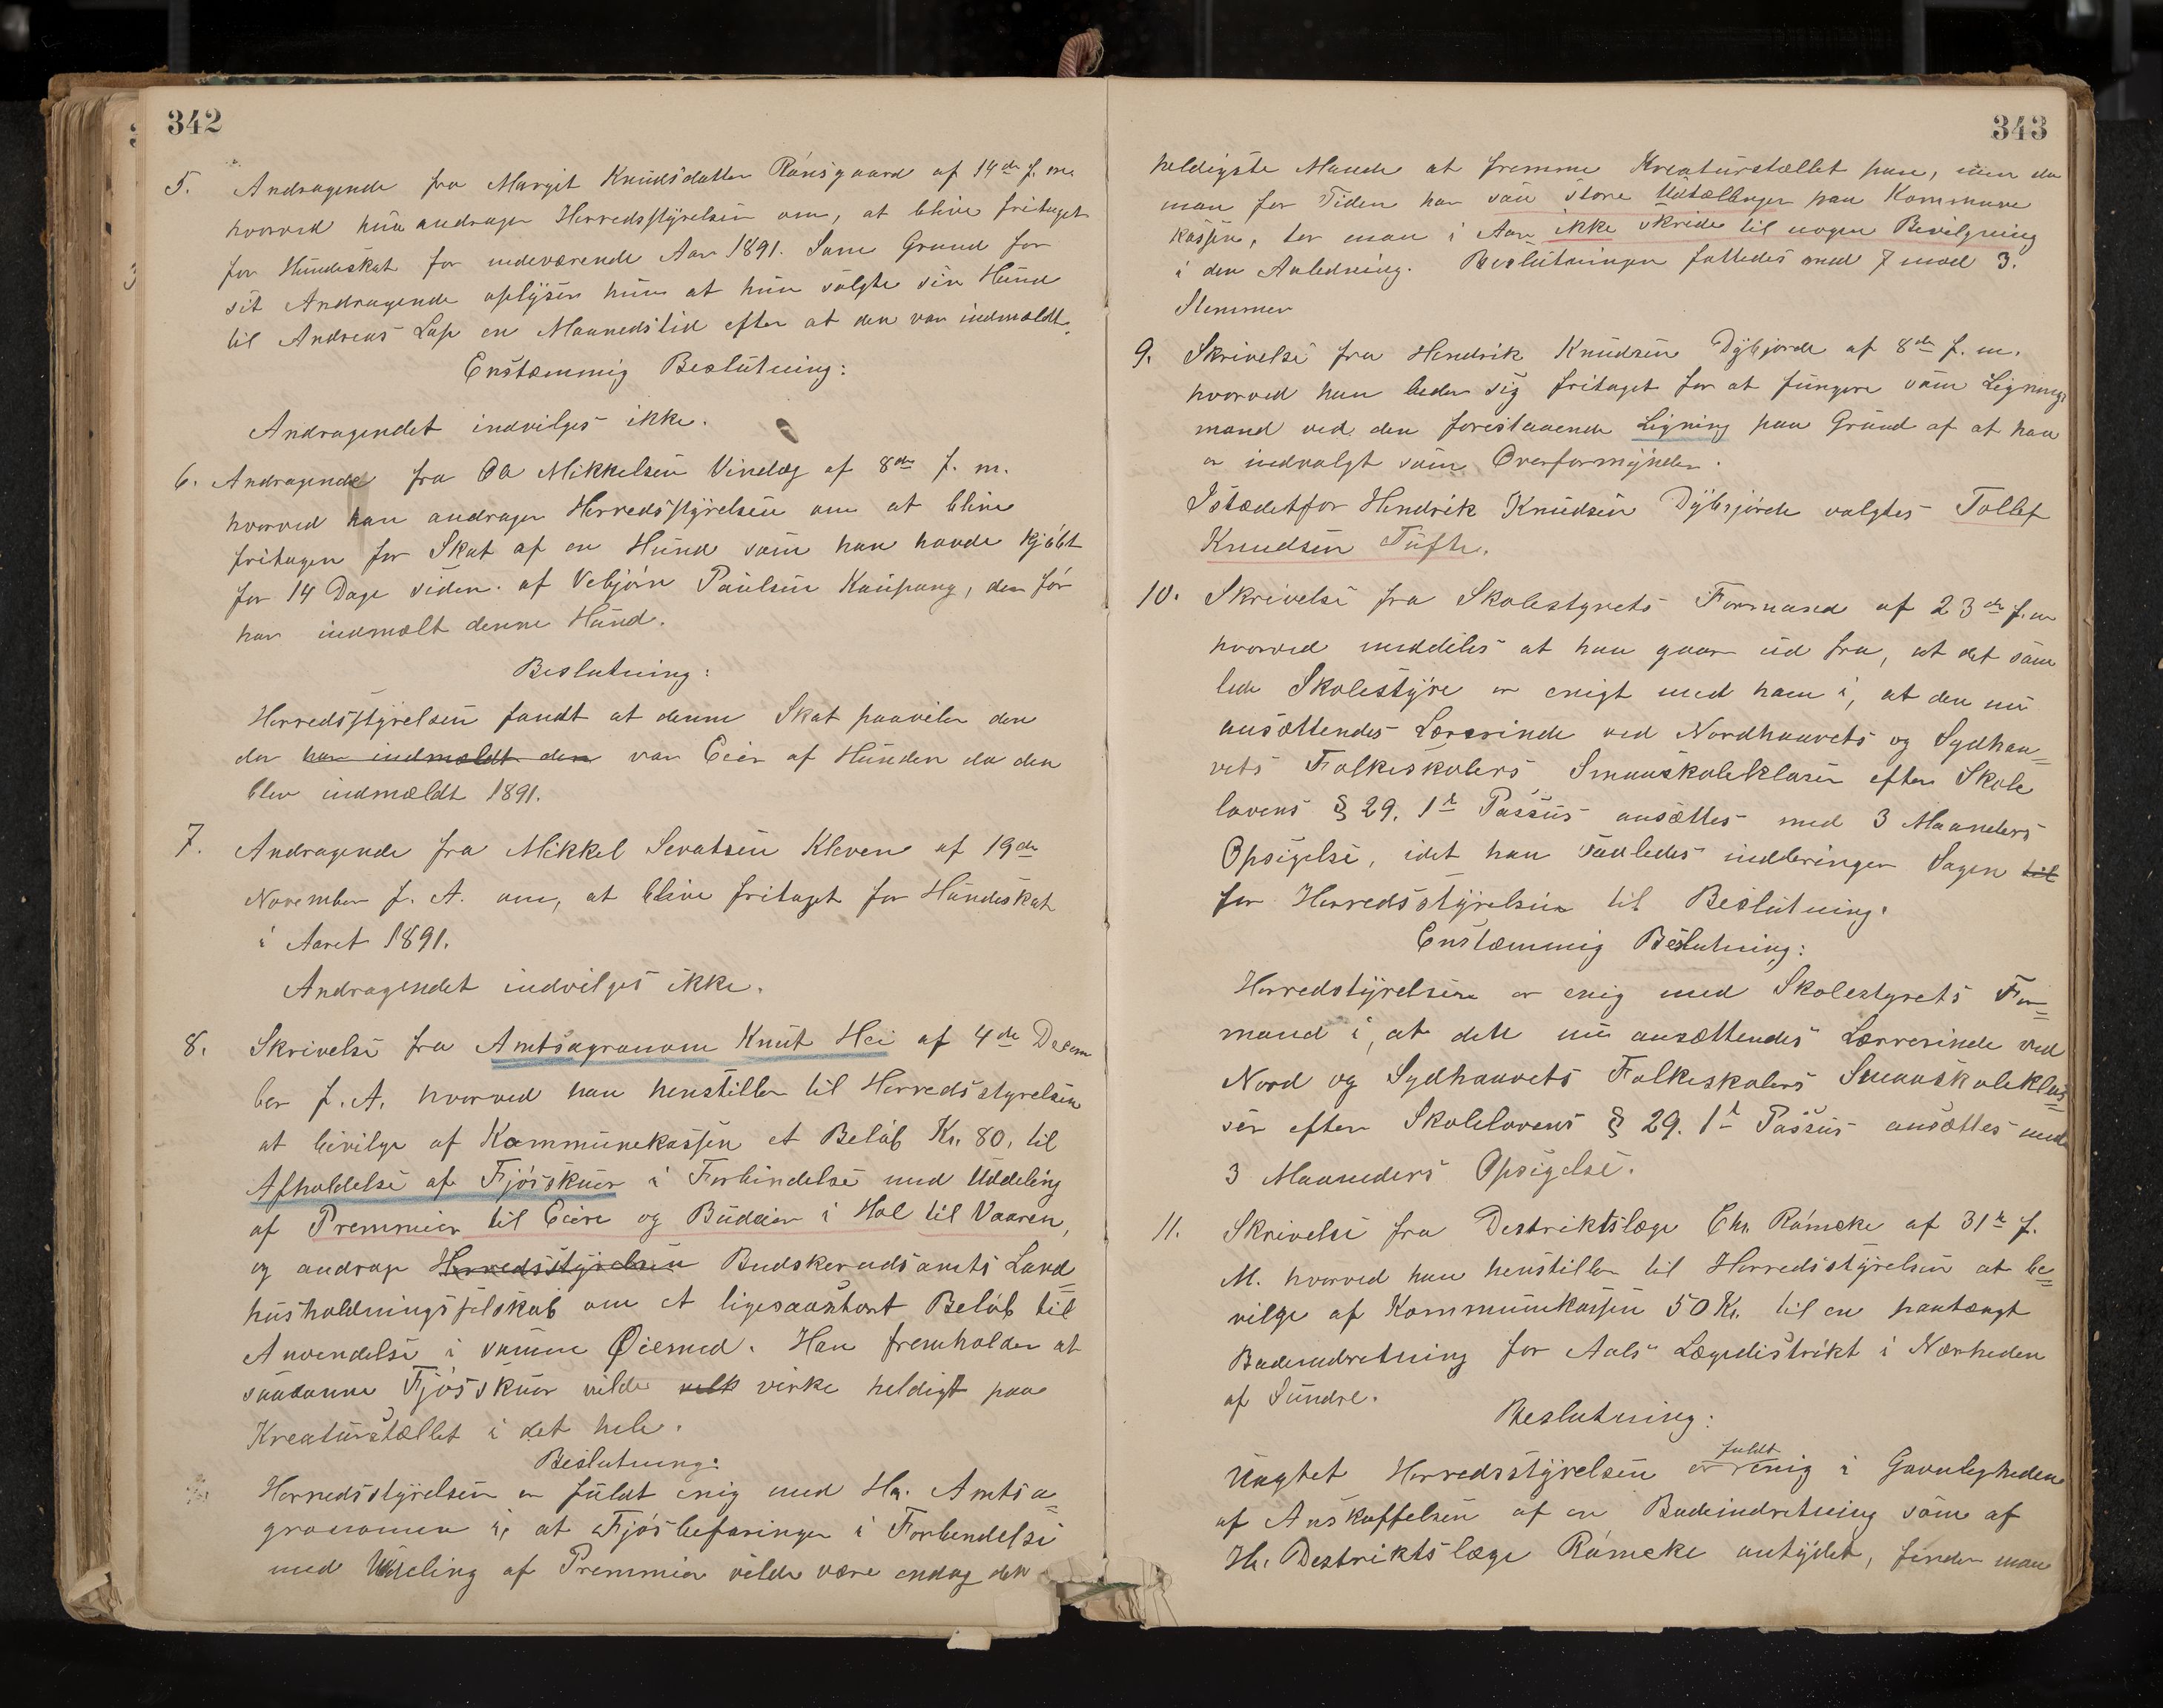 342
5. Andragende fra Margit Knudsdatter Rønsgaard af 14de f. m.
hvorved hun andrager Herredsstyrelsen om, at blive fritaget
for Hundeskat for indeværende Aar 1891. Som Grund for
sit Andragende oplyser hun at hun solgte sin Hund
til Andreas Lap en Maanedstid efter at den var indmældt.
Enstæmmig Beslutning:
Andragendet indvilges ikke.
6. Andragende fra Ola Mikkelsen Vindeg af 8de f. m.
hvorved han andrager Herredsstyrelsen om at blive
fritagen for Skat af en Hund som han havde kjøbt
for 14 Dage siden af Vebjørn Paulsen Kaupang, den før
har indmælt denne Hund.
Beslutning:
Herredsstyrelsen fandt at denne Skat paaviler den
der har indmældt den var Eier af Hunden da den
blev indmældt 1891.
7. Andragende fra Mikkel Sevatsen Kleven af 19de
November f. A. om, at blive fritaget for Hundeskat
i Aaret 1891.
Andragendet indvilges ikke.
8. Skrivelse fra Amtsagronom Knut Hei af 4de Decem
ber f. A. hvorved han henstiller til Herredsstyrelsen
at bevilge af Kommunekassen et Beløb Kr. 80. til
Afholdelse af Fjøsskuer i Forbindelse med Uddeling
af Premmier til Eiere og Budeier i Hol til Vaaren,
og andrage Herredsstyrelsen Buskerudsamts Land=
husholdningsselskab om et ligesaastort Beløb til
Anvendelse i samme Øiemed. Han fremholder at
saadanne Fjøsskuer vilde velk virke heldigt paa
Kreaturstellet i det hele.
Beslutning:
Herredsstyrelsen er fuldt enig med Hr. Amtsa=
gronomen i, at Fjøsbefaringer i Forbindelse
med Uddeling af Premmier vilde være endog den
343
heldigste Maade at fremme Kreaturstællet paa, men da
man for Tiden har saa store Udtællinger paa Kommune
kassen, tør man i Aar ikke skride til nogen Bevilgning
i den Anledning. Beslutningen fattedes med 7 mod 3.
Stemmer
9. Skrivelse fra Hendrik Knudsen Dybsjorde af 8de f. m.
hvorved han beder sig fritaget for at fungere som Lignings
mand ved den forestaaende Ligning paa Grund af at han
er indvalgt som Overformynder.
Istædetfor Hendrik Knudsen Dybsjorde valgtes Tollef
Knudsen Tufte.
10. Skrivelse fra Skolestyrets Formand af 23de f. m
hvorved meddeles at han gaar ud fra, at det sam
lede Skolestyre er enigt med ham i, at den nu
ansættendes Lærerinde ved Nordhauvets og Sydhau=
vets Folkeskolers Smaaskoleklasser efter Skole
lovens § 29. 1ste Passus ansættes med 3 Maaneders
Opsigelse, idet han saaledes indbringer Sagen til
for Herredsstyrelsen til Beslutning.
Enstæmmig Beslutning:
Herredstyrelsen er enig med Skolestyrets For=
mand i, at dett nu ansættendes Lærerinde ved
Nord og Sydhauvets Folkeskolers Smaaskoleklas=
ser efter Skolelovens § 29. 1ste Passus ansættes med
3 Maaneders Opsigelse.
11. Skrivelse fra Destriktslæge Chr. Rømcke af 31te f.
M. hvorved han henstiller til Herredsstyrelsen at be=
vilge af Kommunekassen 50 Kr. til en paatængt
Badeindretning for Aals Lægedistrikt i Nærheden
af Sundre.
Beslutning:
Uagtet Herredsstyrelsen er fuldt enig i Gavnligheden
af Anskaffelsen af en Badeindretning som af
Hr. Destriktslæge Rømcke antydet, finder man